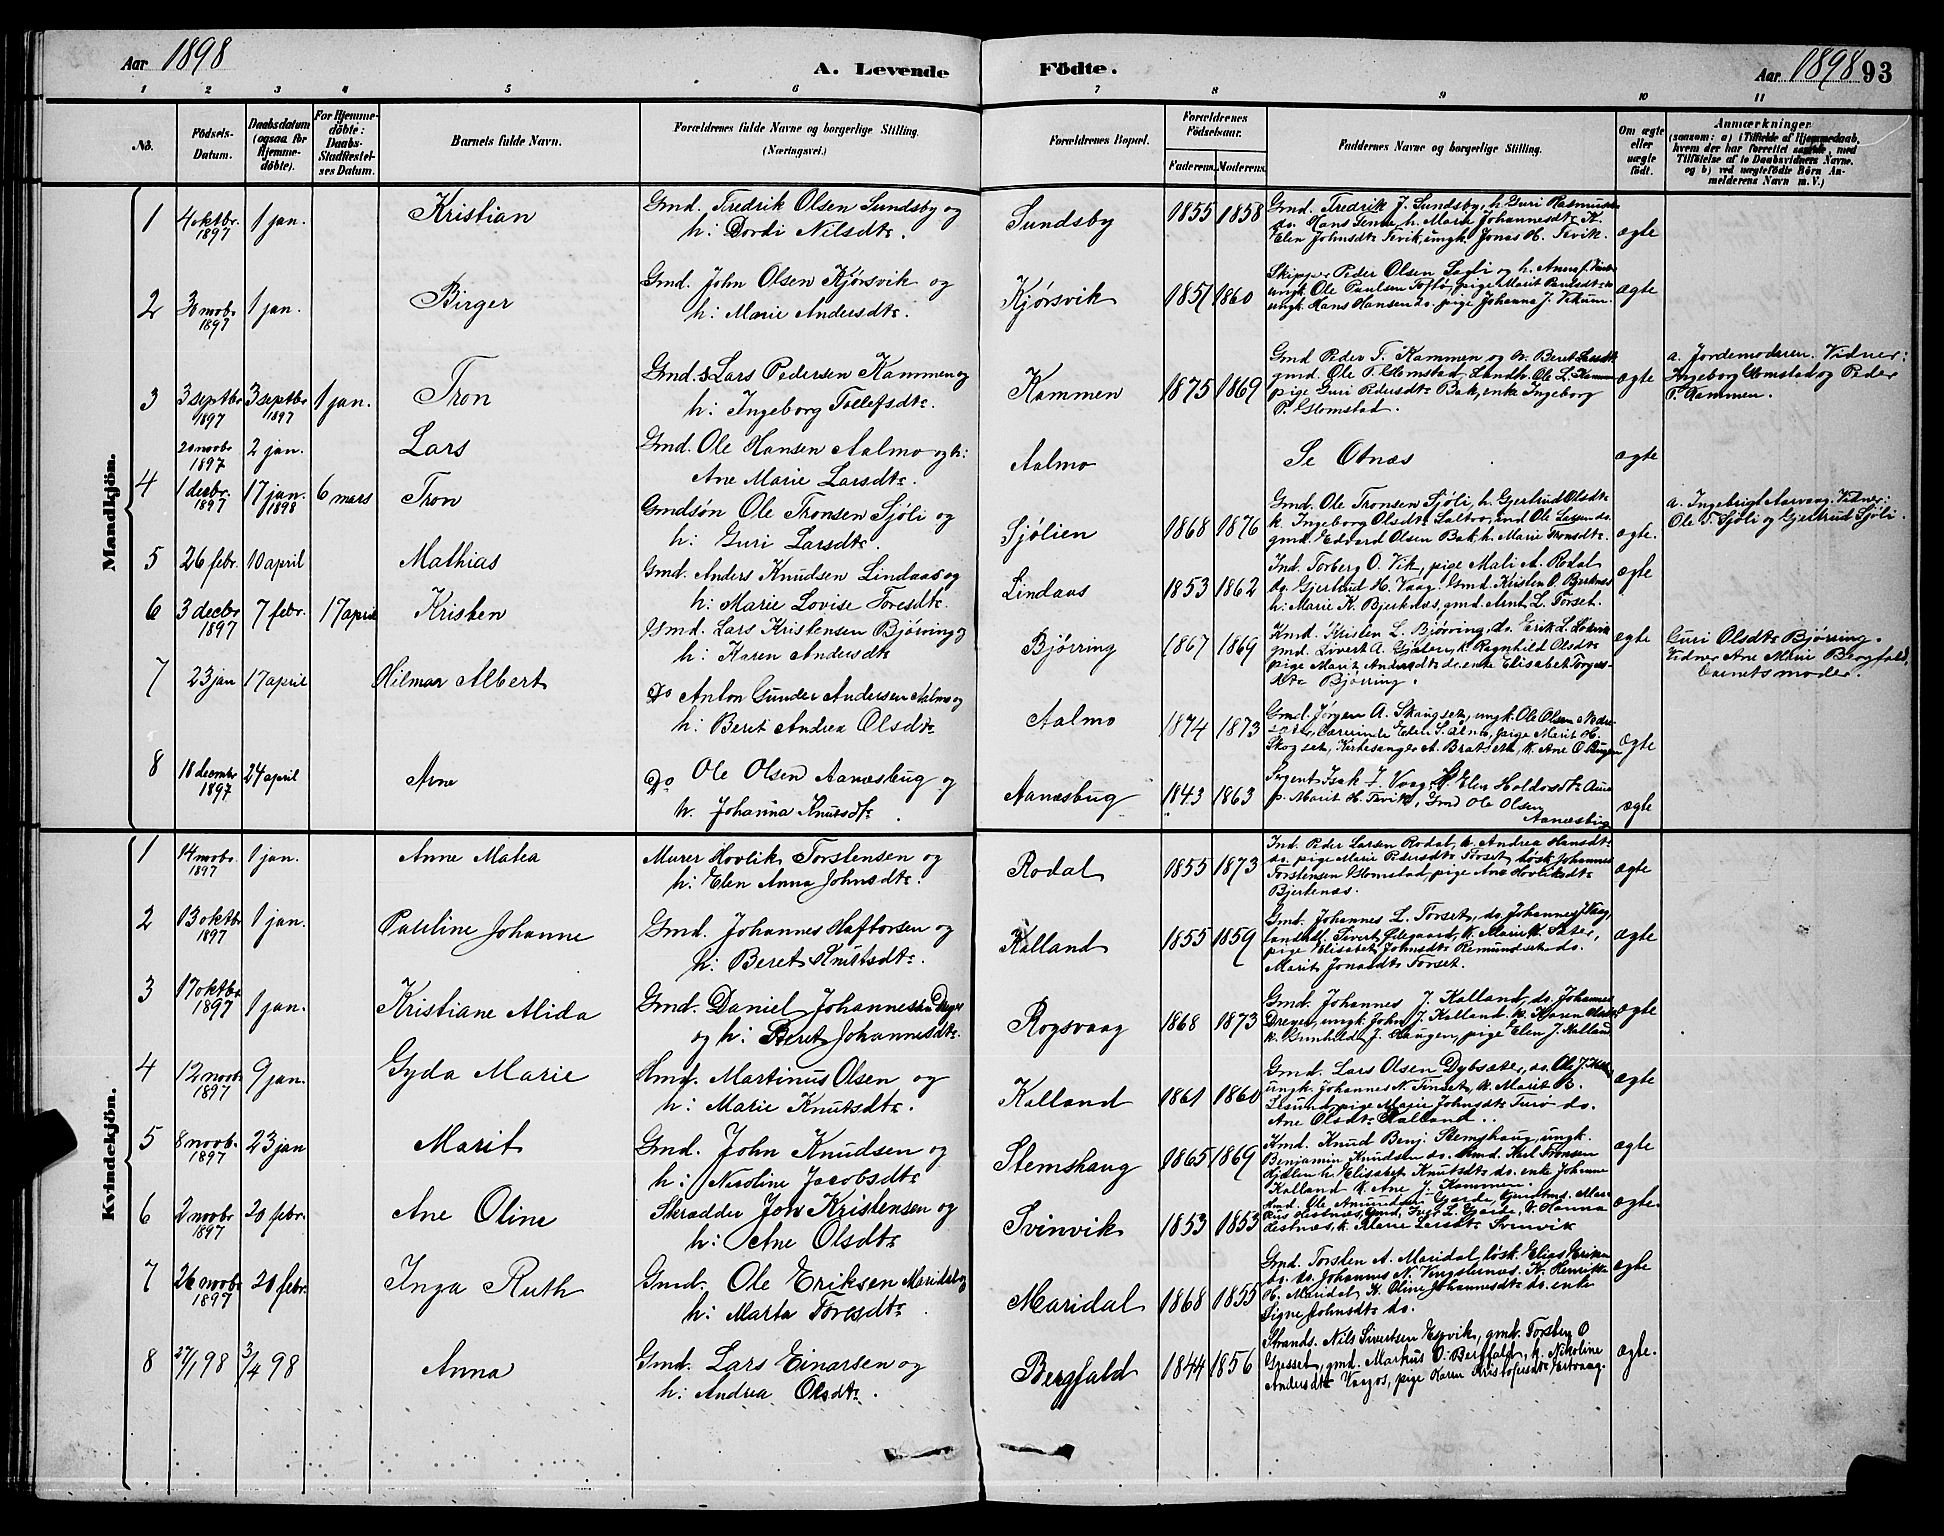 Aar 1898 A. Levende Födte. Aar 1898 93
1 2 3 4 5 6 7 8 9 10 11
No. Födsels-Datum. Daabsdatum (ogsaa for Hjemmedöbte). For Hjemmedöbte: Daabs-Stadfæstelses Datum. Barnets fulde Navn. Forældrenes fulde Navne og borgerlige Stilling. (Næringsvei.) Forældrenes Bopæl. Forældrenes Födselsaar. Faderens. Moderens. Faddernes Navne og borgerlige Stilling. Om ægte eller uægte födt. Anmærkninger (saasom: a) i Tilfælde af Hjemmedaab, hvem der har forrettet samme, med Tilföielse af to Daabsvidners Navne. og b) ved uægtefödte Börn Anmelderens Navn m. V.)
Mandkjön.
1 4 oktbr. 1897 1 jan. Kristian Gmd. Fredrik Olsen Sundsby og h: Dordi Nilsdtr. Sundsby 1855 1858 Gmd. Fredrik J. Sundsby, h. Guri Rasmusdtr do. Hans h. Marie Johannesdtr K. Elen Johnsdtr Tevik, ungk. Jonas H. Tevik. ægte
2 30 novbr 1897 1 jan. Birger Gmd. John Olsen Kjørsvik og h: Marie Andersdtr. Kjørsvik 1851 1860 Skipper Peder Olsen Sagli og h. Anna ungk. Ole Paulsen Toftø, pige Marit Paulsdtr ungk. Hans Hansen do. pige Johanna J. Vikum. ægte
3 3 septbr 1897 3 septbr 1897 1 jan. Tron Gmd.s Lars Pedersen Kammen og h: Ingeborg Tollefsdtr. Kammen 1875 1869 Gmd Peder T. Kammen og h. Beret Larsdtr gmd. Ole P. Glomstad, Landh. Ole L. Kammen pige Guri Pedersdtr Bak, enke Ingeborg P. Glomstad. ægte a. Jordemoderen. Vidner: Ingeborg Glomstad og Peder P. Kammen.
20 novbr 1897 2 jan. Lars Gmd. Ole Hansen Aalmo og h: Ane Marie Larsdtr. Aalmo Se Otnæs ægte
4 1 decbr. 1897 17 jan. 1898 6 mars Tron Gmdsøn Ole Tronsen Sjøli og h: Guri Larsdtr. Sjølien 1868 1876 Gmd. Ole Tronsen Sjøli, h. Gjertrud Olsdtr k. Ingeborg Olsdtr Ole Larsen do. gmd. Edvard Olsen Bak h. Marie Tronsdtr. ægte. a. Ingebrigt Aarvaag. Vidner: Ole T. Sjøli og Gjertrud Sjøli.
5 26 febr. 10 april Mathias Gmd. Anders Knudsen Lindaas og h: Marie Lovise Toresdtr. Lindaas 1853 1862 Ind. Torberg O. Vik, pige Mali A. Rodal do. Gjertrud H. Vaag. Gmd. Kristen O. Bjerknes h: Marie K. Bjerknæs, gmd. Arnt L. Torset. ægte
6 3 decbr 1897 7 febr. 17 april Kristen Gmd. Lars Kristensen Bjørring og h: Karen Andersdtr Bjørring 1867 1869 Kmd. Kristen L. Bjørring, do. Erik L. gmd. Sivert A. Gjelen, k. Ragnhild Olsdtr pige Marit Andersdtr do. enke Elisabet Torgersdtr Bjørring. ægte Guri Olsdtr Bjørring. Vidner Ane Marie Bergfald, barnets moder.
7 23 jan 17 april Hilmar Albert Do Anton Gunder Andersen Aalmo og h: Beret Andrea Olsdtr Aalmo 1874 1873 Gmd. Jørgen A. Skaugset, ungk. Ole Olsen pige Marit H. Skogset, Kirkesanger A. Bratset, k. Ane O. Bugen ægte
8 18 decembr 1897 24 april Arne Do Ole Olsen Aanæsbug og h. Johanna Knutsdtr. Aanæsbug 1843 1863 Sergent Isak J. Vaag, Elen Holdorsdtr p. Marit H. Tevik, Gmd Ole Olsen Aanæsbug ægte
Kvindekjön.
1 14 novbr. 1897 1 jan. Anne Matea Murer Hovlik Torstensen og h: Elen Anna Johnsdtr. Rodal 1855 1873 Ind. Peder Larsen Rodal, h. Andrea Hansdtr do. pige Marie Pedersdtr Torset, løsk. Johannes Torstensen Glomstad, pige Ane Hovliksdtr Bjerkenæs. ægte
2 13 oktbr 1897 1 jan. Pauline Johanne Gmd. Johannes Haftorsen og h: Beret Knutsdtr. Kalland 1855 1859 Gmd. Johannes L. Torset, do. Johannes J. Vaag, Sivert Ødegaard, k. Marie K. Sæter, pige Elisabet Johnsdtr Remundset do. Marit Jonasdtr Torset. ægte
3 17 oktbr 1897 1 jan. Kristiane Alida Gmd. Daniel Johannesen Dreyer og h: Beret Johannesdtr. Rogsvaag 1868 1873 Gmd. Johannes J. Kalland, do. Johannes Dreyer, ungk. John J. Kalland k. Karen Olsdtr k. Gunhild J. Haugen, pige Elen J. Kalland ægte
4 12 novbr 1897 9 jan. Gyda Marie Hmd. Martinus Olsen og h: Marie Knutsdtr. Kalland 1861 1860 Gmd. Lars Olsen Dybsæter, do. Ole J. ungk. Johannes N. Tinset, k. Marit B. Lesund, pige Marie Johnsdtr Turø do. Ane Olsdtr Kalland. ægte
5 8 novb. 1897 23 jan Marit Gmd. John Knudsen og h: Nicoline Jacobsdtr Stemshaug 1865 1869 Kmd. Knud Benj. Stemshaug, ungk. Benjamin Knudsen do. Gmd. Karl Tronsen Hjælen h. Elisabet Knutsdtr do. enke Johanne Kalland k. Ane J. Kammen. ægte
6 2 novbr 1897 20 febr. Ane Oline Skrædder Jon Kristensen og h: Ane Olsdtr. Svinvik 1853 1853 Gmd. Ole Amundsen Gjerde, L. Gjerde, k. Hanna k. Marie Larsdtr Svinvik ægte.
7 26 novbr 1897 20 febr. Inga Ruth Gmd. Ole Eriksen Maridal og h: Marta Toresdtr. Maridal 1868 1855 Gmd. Torsten A. Maridal, løsk. Elias Eriksen do. do. Johannes N. K. Henrikke H. Maridal K. Oline Johannesdtr do. enke Signe Johnsdtr do. ægte
8 27/1 98 3/4 98 Anna Gmd. Lars Einarsen og h: Andrea Olsdtr. Bergfald 1844 1856 Strands. Nils Sivertsen Espvik, gmd. Torsten O Gjesset, gmd. Markus O. Bergfald, k. Nikoline Andersdtr Vaagos, pige Karen Kristofersdtr Ertvaag. ægte.